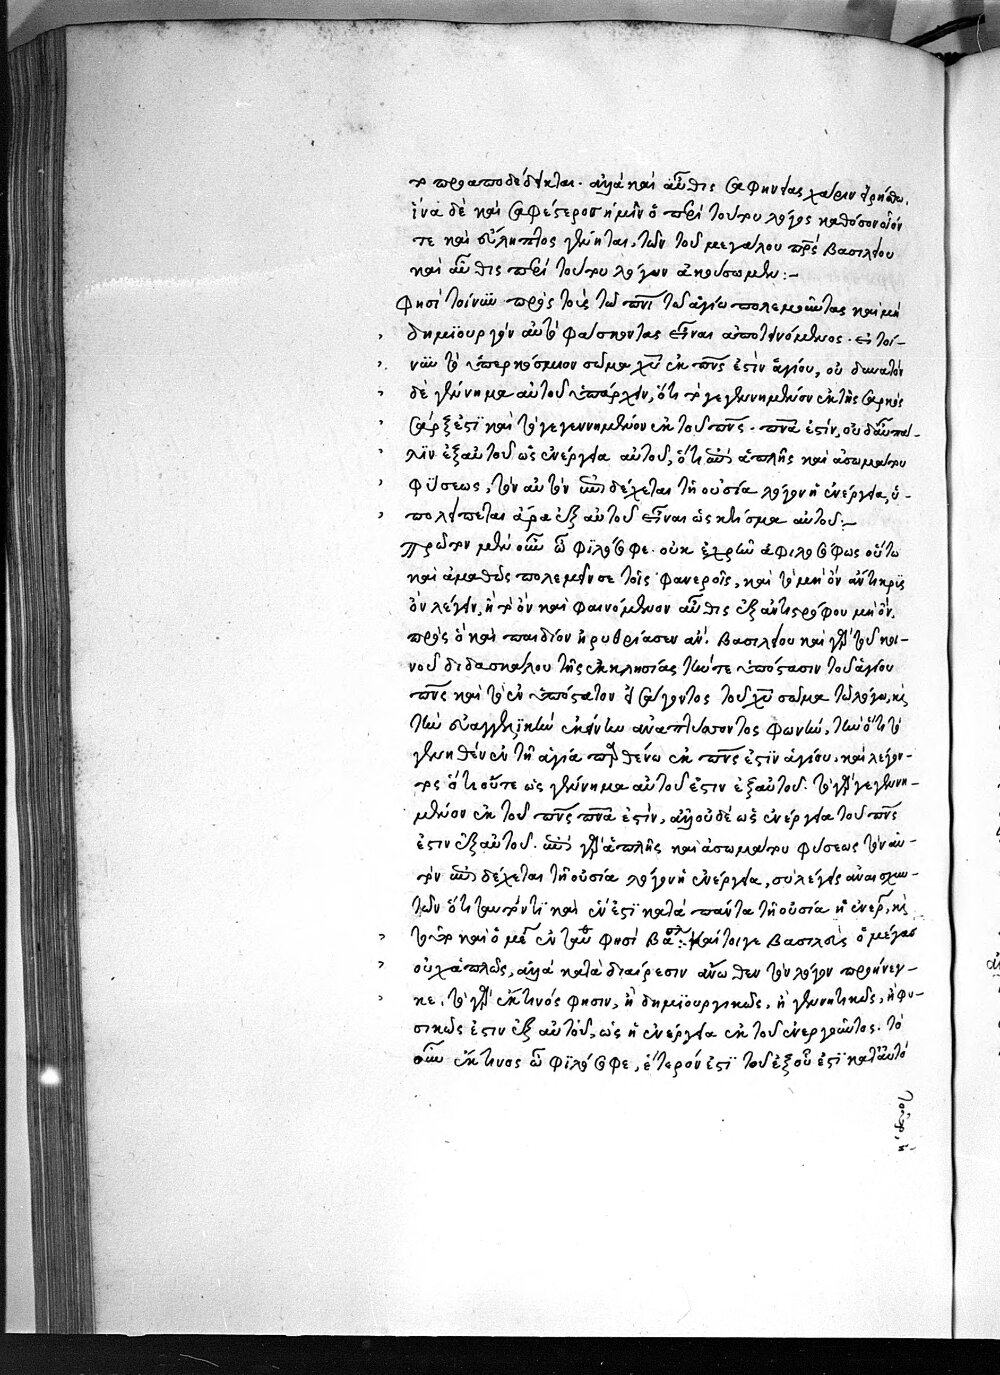 το προαποδέδεικται. ἀλλὰ καὶ αὖθις σαφηνείας χάριν εἰρήσθω.
ἵνα δὲ καὶ σαφέστερος ἡμῖν ὁ περὶ τούτου λόγος καθόσον οἷόν
τε καὶ εὔληπτος γένηται, τῶν τοῦ μεγάλου πρὸς βασιλείου
καὶ αὖθις περὶ τούτου λόγων ἀκούσωμεν:-
Φησὶ τοίνυν πρὸς τοὺς τῶ πνι τῶ ἁγίω πολεμοῦντας καὶ μὴ
δημιουργὸν αὐτὸ φάσκοντας εἶναι ἀποτεινόμενος. εἰ τοί-
νυν τὸ ὑπερκόσμιον σῶμα χυ ἐκ πνς ἐστὶν ἁγίου, οὐ δυνατὸν
δὲ γέννημα αὐτοῦ ὑπάρχειν, ὅτι τὸ γεγεννημένον ἐκ τῆς σαρκὸς
σάρξ ἐστι καὶ τὸ γεγεννημένον ἐκ τοῦ πνς. πνα ἐστίν, οὐδ' αὖ πά-
λιν ἐξ αὐτοῦ ὡς ἐνέργεια αὐτοῦ, ὅτι μὴ ἁπλῆς καὶ ἀσωμάτου
φύσεως, τὸν αὐτὸν δέχεται τῆ οὐσία λόγον ἡ ἐνέργεια, ὑ-
πολείπεται ἄρα ἐξ αὐτοῦ εἶναι ὡς κτίσμα αὐτοῦ:-
Πρῶτον μὲν οὖν ὦ φιλόσοφε. οὐκ ἐχρῆν ἀφιλοσόφως οὕτω
καὶ ἀμαθῶς πολεμεῖν σε τοῖς φανεροῖς, καὶ τὸ μὴ ὂν ἄντικρυς
ὂν λέγειν, ἢ τὸ ὂν καὶ φαινόμενον αὖθις ἐξ ἀντιστρόφου μὴ ὄν.
πρὸς ὃ καὶ παιδίον ἠρυθρίασεν ἄν. βασιλείου καὶ γὰρ τοῦ κοι-
νοῦ διδασκάλου τῆς ἐκκλησίας τήν τε ὑπόστασιν τοῦ ἁγίου
πνς καὶ τὸ ἐν ὑπόστατον εἰσάγοντος τοῦ χυ σῶμα τῶ λόγω, κὶ
τὴν εὐαγγελικὴν ἐκείνην ἀναπτύσσοντος φωνήν, τὴν ὅτι τὸ
γεννηθὲν ἐν τῆ ἁγία παρθένω ἐκ πνς ἐστὶν ἁγίου. καὶ λέγον-
τος ὅτι οὔτε ὡς γέννημα αὐτοῦ ἐστιν ἐξ αὐτοῦ. τὸ γὰρ γεγεννη-
μένον ἐκ τοῦ πνς πνα ἐστίν, ἀλλ' οὐδὲ ὡς ἐνέργεια τοῦ πνς
ἐστιν ἐξ αὐτοῦ. γὰρ ἁπλῆς καὶ ἀσωμάτου φύσεως τὸν αὐ-
τὸν δέχεται τῆ οὐσία λόγον ἡ ἐνέργεια, σὺ λέγεις ἀναισχυν-
τῶν ὅτι ταυτόν τι καὶ ἕν ἐστι κατὰ πάντα τῆ οὐσία ἡ ἐνέρ, κὶ
τοῦτο καὶ ὁ μέ ἐν τού φησὶ βασίλ:. Καίτοιγε βασίλειος ὁ μέγας
οὐχ ἁπλῶς, ἀλλὰ κατὰ διαίρεσιν ἄνωθεν τὸν λόγον προήνεγ-
κε. τὸ γὰρ ἔκ τινός φησιν, ἢ δημιουργικῶς, ἢ γεννητικῶς, ἢ φυ-
σικῶς ἐστιν ἐξ αὐτοῦ, ὡς ἡ ἐνέργεια ἐκ τοῦ ἐνεργοῦντος. τὸ
οὖν ἔκ τινος ὦ φιλόσοφε, ἕτερόν ἐστι τοῦ ἐξ οὗ ἐστὶ κατ' αὐτὸ